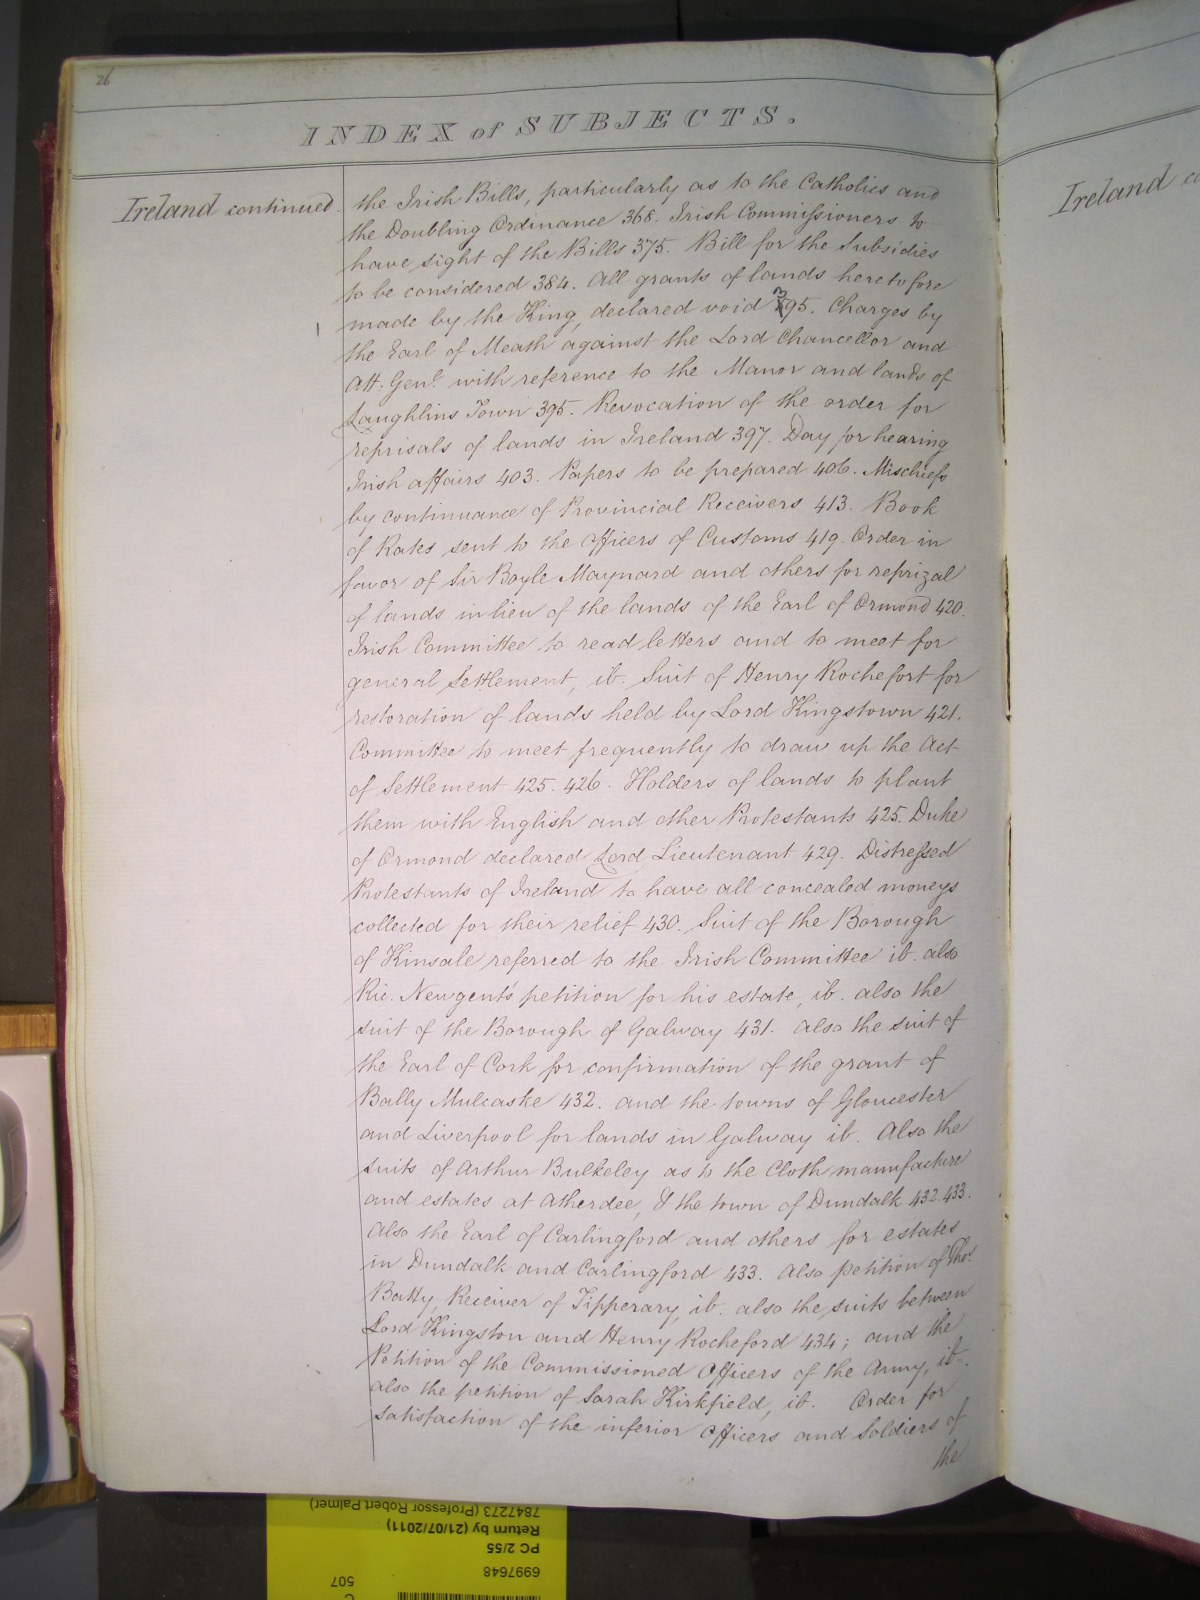 26
INDEX of SUBJECTS.
Ireland continued.
the Irish Bills, particularly as to the Catholics and
the Doubling Ordinance 368. Irish Commissioners to
have sight of the Bills 375. Bill for the Subsidies
to be considered 384. All grants of lands heretofore
made by the King, declared void 395. Charges by
the Earl of Meath against the Lord Chancellor and
Att: Genl. with reference to the Manor and lands of
Laughlins Town 395. Revocation of the order for
reprisals of lands in Ireland 397. Day for hearing
Irish affairs 403. Papers to be prepared 406. Mischiefs
by continuance of Provincial Receivers 413. Book
of Rates sent to the Officers of Customs 419. Order in
favor of Sir Boyle Maynard and others for reprizal
of lands in lieu of the lands of the Earl of Ormond 420.
Irish Committee to read letters and to meet for
general Settlement, ib. Suit of Henry Rochefort for
restoration of lands held by Lord Kingstown 421.
Committee to meet frequently to draw up the Act
of Settlement 425. 426. Holders of lands to plant
them with English and other Protestants 425. Duke
of Ormond declared Lord Lieutenant 429. Distressed
Protestants of Ireland to have all concealed moneys
collected for their relief 430. Suit of the Borough
of Kinsale referred to the Irish Committee ib. also
Ric. Newgent's petition for his estate, ib. also the
suit of the Borough of Galway 431. Also the suit of
the Earl of Cork for confirmation of the grant of
Bally Mulcaske 432. and the towns of Gloucester
and Liverpool for lands in Galway ib. Also the
suits of Arthur Bulkeley as to the Cloth manufacture
and estates at Atherdee, & the town of Dundalk 432. 433.
Also the Earl of Carlingford and others for estates
in Dundalk and Carlingford 433. Also petition of Thos.
Batty, Receiver of Tipperary, ib. also the suits between
Lord Kingston and Henry Rocheford 434; and the
Petition of the Commissioned Officers of the Army, ib.
also the petition of Sarah Kirkfield, ib. Order for
satisfaction of the inferior Officers and Soldiers of
the
Ireland co
7847273 (Professor Robert Palmer)
Return by (21/07/2011)
PC 2/55
6997648
507